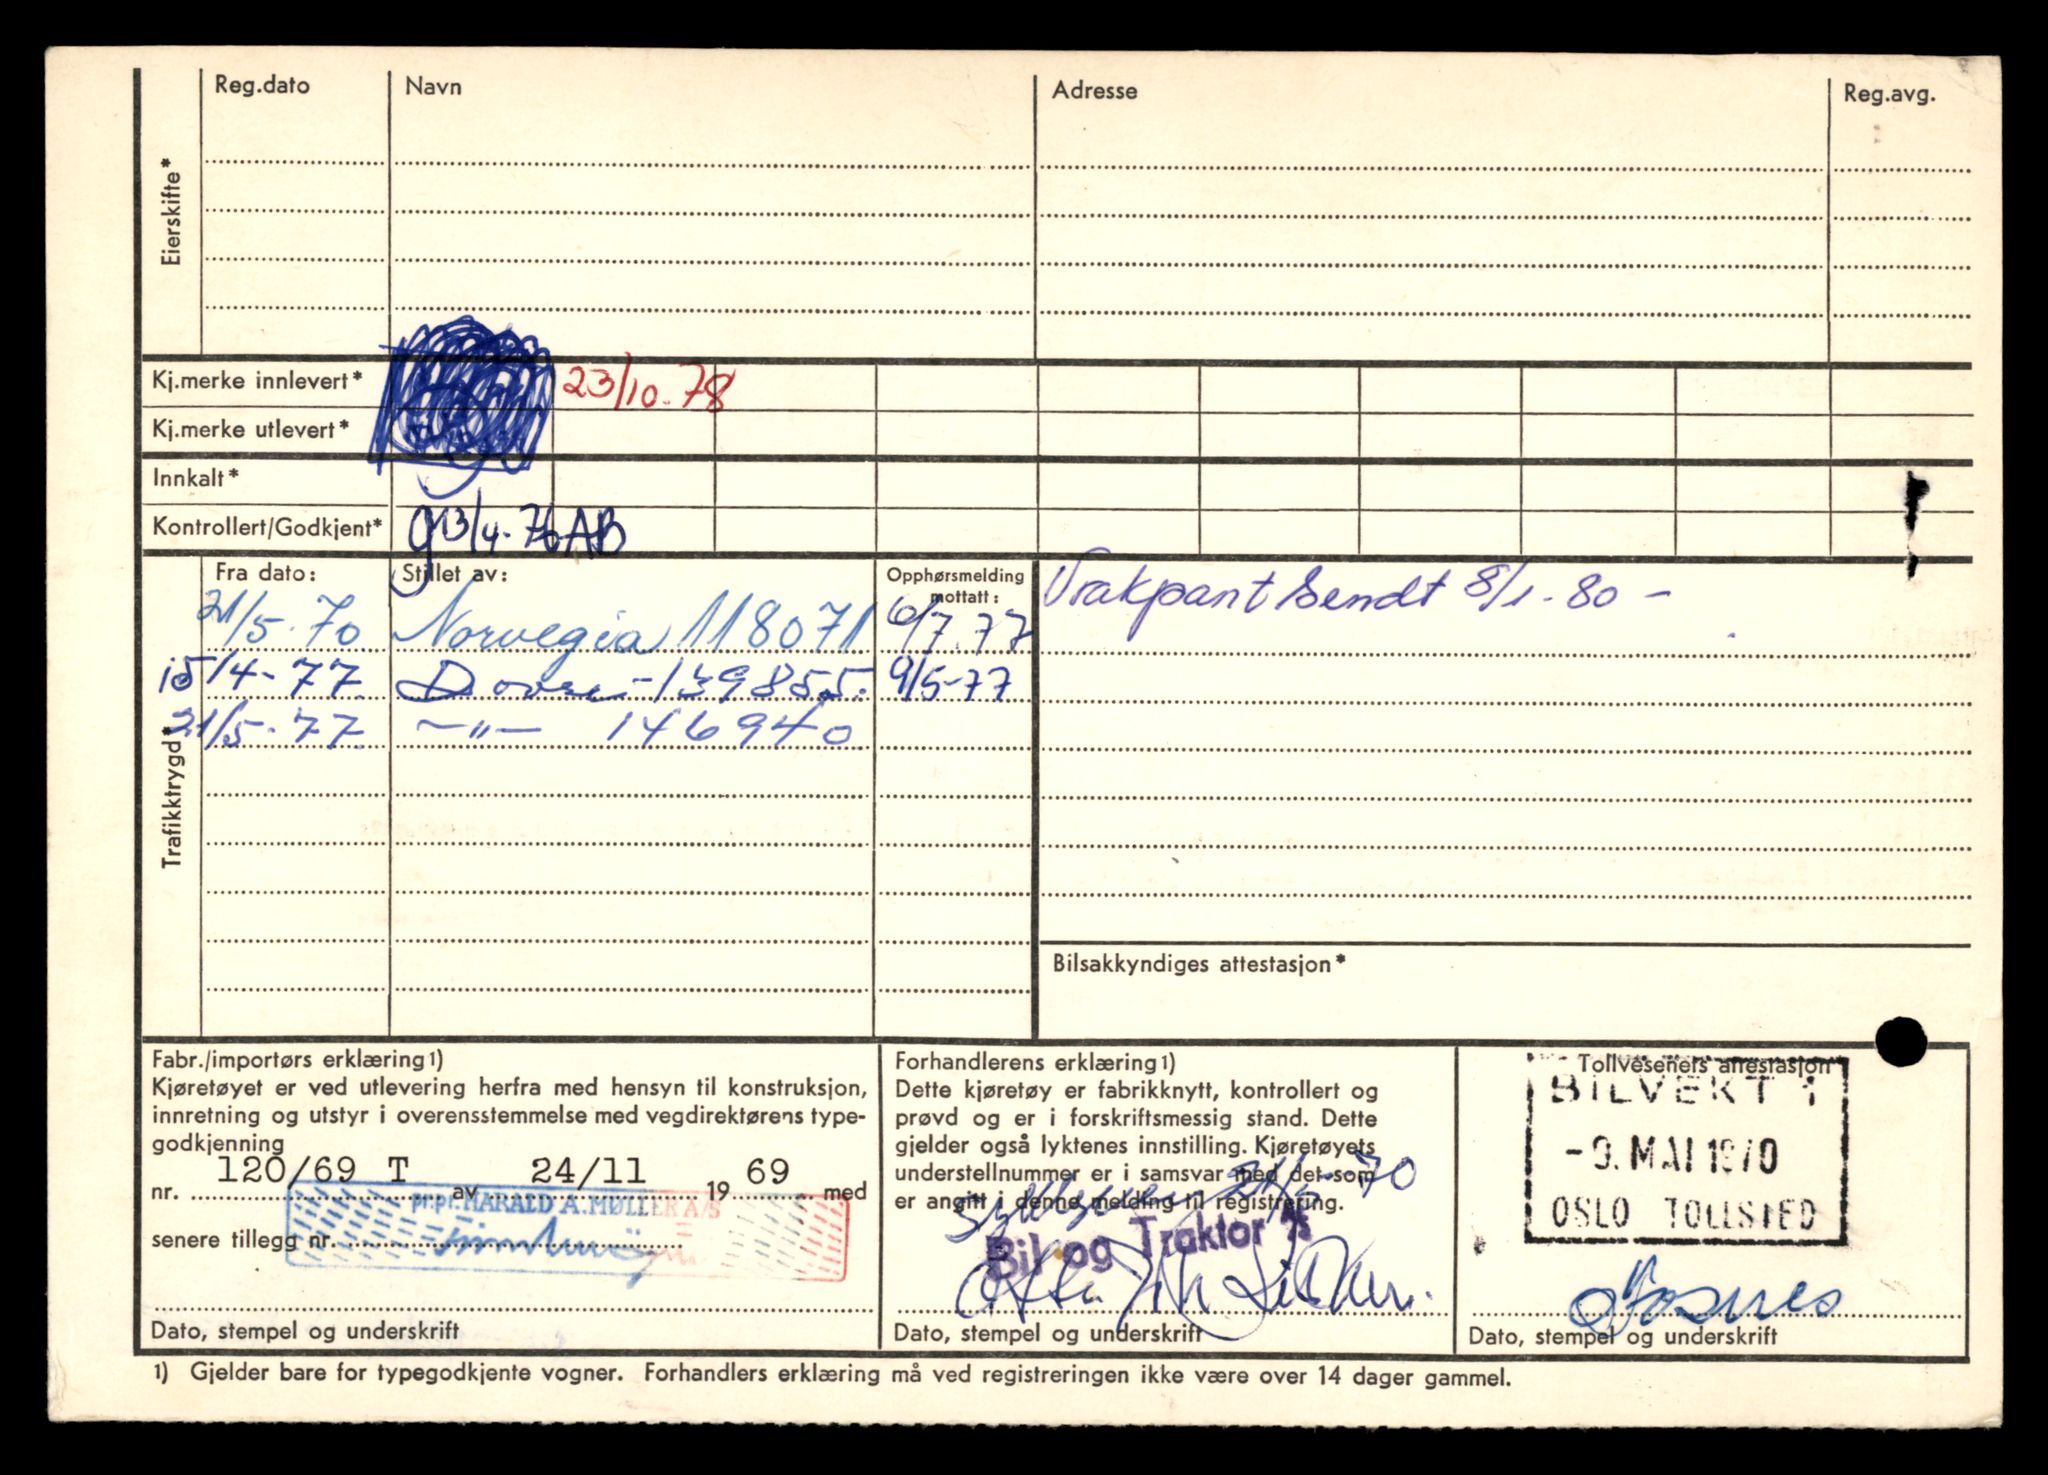 Reg.dato Navn Adresse Reg.avg.
Eierskifte*
Kj.merke innlevert* 23/10.78
Kj.merke utlevert*
Innkalt*
Kontrollert/Godkjent* g 13/4-76 AB
Trafikktrygd*
Fra dato: Stillet av: Opphørsmelding mottatt:
21/5.70 Norvegia 118071 6/7.77
15/4-77. Dovre-139855. 9/5-77
21/5-77. -"- 146940
Vrakpant sendt 8/1-80 -
Bilsakkyndiges attestasjon*
Fabr./importørs erklæring1)
Kjøretøyet er ved utlevering herfra med hensyn til konstruksjon,
innretning og utstyr i overensstemmelse med vegdirektørens type-
godkjenning
nr. 120/69 T av 24/11 19 69 med
pr.pr. HARALD A. MØLLER A/S
senere tillegg nr.
Dato, stempel og underskrift
Forhandlerens erklæring1)
Dette kjøretøy er fabrikknytt, kontrollert og
prøvd og er i forskriftsmessig stand. Dette
gjelder også lyktenes innstilling. Kjøretøyets
understellnummer er i samsvar med det som
er angitt i denne melding til registrering.
21/5-70
Bil og Traktor A/S
Dato, stempel og underskrift
Tollvesenets attestasjon
BILVEKT 1
-9. MAI 1970
OSLO TOLLSTED
Dato, stempel og underskrift
1) Gjelder bare for typegodkjente vogner. Forhandlers erklæring må ved registreringen ikke være over 14 dager gammel.